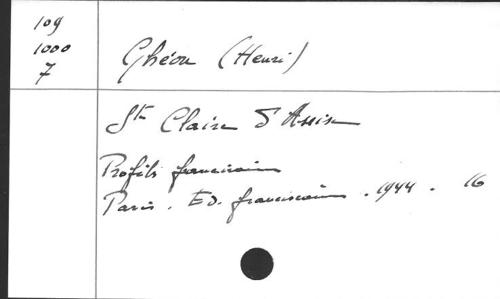 109
1000
7
Ghéon (Henri)
Ste Claire d'Assise
Profils franciscains
Paris. Ed. franciscaines. 1944. 16